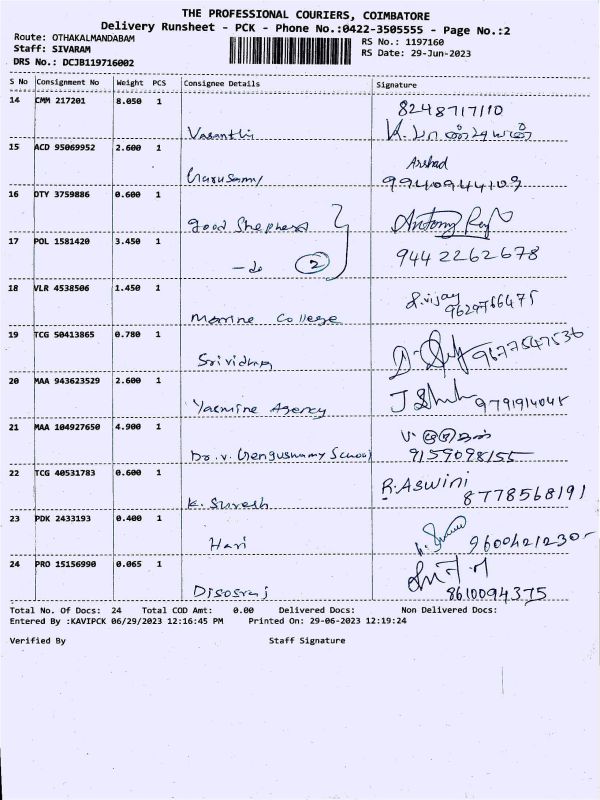 THE PROFESSIONAL COURIERS, COIMBATORE
Delivery Runsheet - PCK - Phone No.:0422-3505555 - Page No.:2
Route: OTHAKALMANDABAM
RS No.: 1197160
Staff: SIVARAM
RS Date: 29-Jun-2023
DRS No.: DCJB119716002
S No Consignment No Weight PCS Consignee Details Signature
14 CMM 217201 8.050 1
8248717110
Vasanthi
15 ACD 95069952 2.600 1
Arshad
9940944109
16 DTY 3759886 0.600 1
Good Shepherd Antony Raj
17 POL 1581420 3.450 1
- do 2 9442262678
18 VLR 4538506 1.450 1
S.vijay
9629766475
Marrine College
19 TCG 50413865 0.780 1
9677547536
Srividhya
20 MAA 943623529 2.600 1
Yasmine Agency 9791914045
21 MAA 104927650 4.900 1
Dr. V. Genguswamy School 9159098155
22 TCG 40531783 0.600 1
R.Aswini
K. Suresh 8778568191
23 PDK 2433193 0.400 1
Hari
24 PRO 15156990 0.065 1
8610094375
Total No. Of Docs: 24 Total COD Amt: 0.00 Delivered Docs: Non Delivered Docs:
Entered By :KAVIPCK 06/29/2023 12:16:45 PM Printed On: 29-06-2023 12:19:24
Verified By Staff Signature